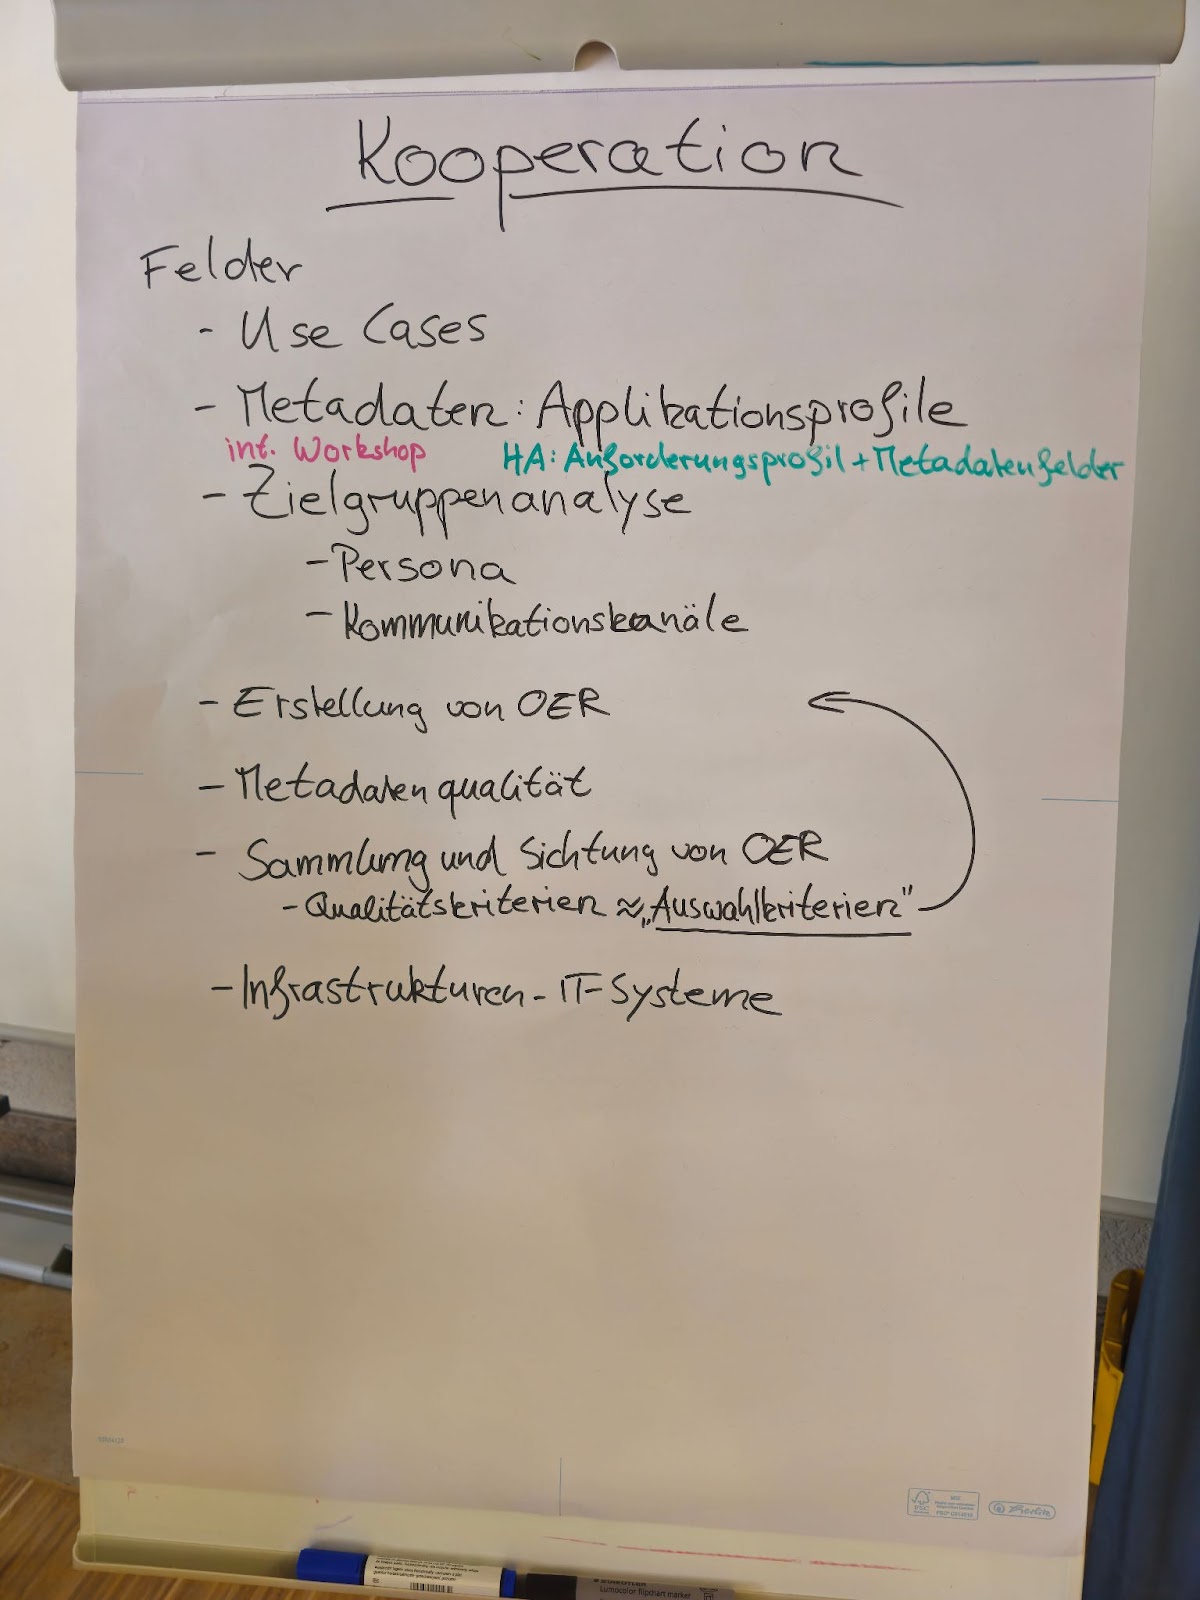 Kooperation
Felder
- Use Cases
- Metadaten: Applikationsprofile
int. Workshop HA: Anforderungsprofil + Metadatenfelder
- Zielgruppenanalyse
- Persona
- Kommunikationskanäle
- Erstellung von OER
- Metadatenqualität
- Sammlung und Sichtung von OER
- Qualitätskriterien ≈ „Auswahlkriterien"
- Infrastrukturen - IT-Systeme
FSC
Lumocolor flipchart marker